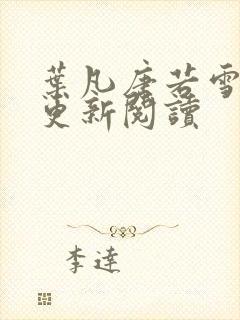 葉凡唐若雪
更新閱讀
李達